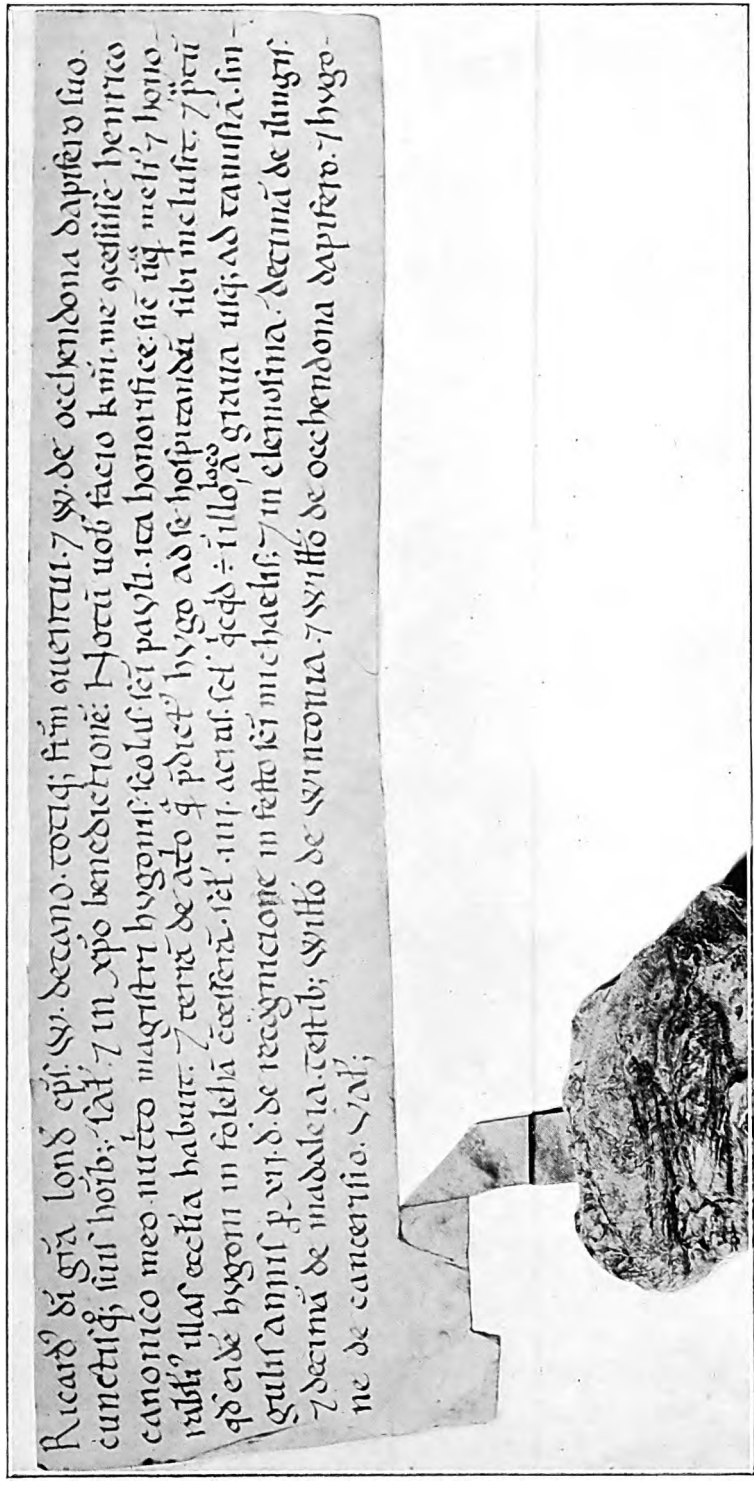 Ricard' di gr̄a lond' ep̄s. W. decano. totiq; fr̄m ꝯuentui. ⁊ W. de occhendona dapifero suo.
cunctisq; suis hoīb; sal'. ⁊ in xp̄o benedictionē. Notū uob' facio kmī. me ꝯcessisse henrico
canonico meo nutrito magistri hugonis. scolas sc̄i pauli. ita honorifice sic ūq̄ meli' ⁊ hono-
rabili' illas eccl̄ia habuit. ⁊ terrā de atrio q̄ p̄dict' hugo ad se hospitandū sibi inclusit. ⁊ p̄tū
qd' eidē hugoni in folehā c̄cesserā. scl' .iiii. acras. scl' q̄cq̄d ÷ ī illo loco, a grana usq; ad tamisiā. sin-
gulis annis p̱ xij. d'. de recognicione in festo sc̄i michaelis; ⁊ in elemosina. decimā de ilingis.
⁊ decimā de madaleia. testib; Willō de Wintonia. ⁊ Willō de occhendona dapifero. ⁊ hugo-
ne de cancerisio. Val';